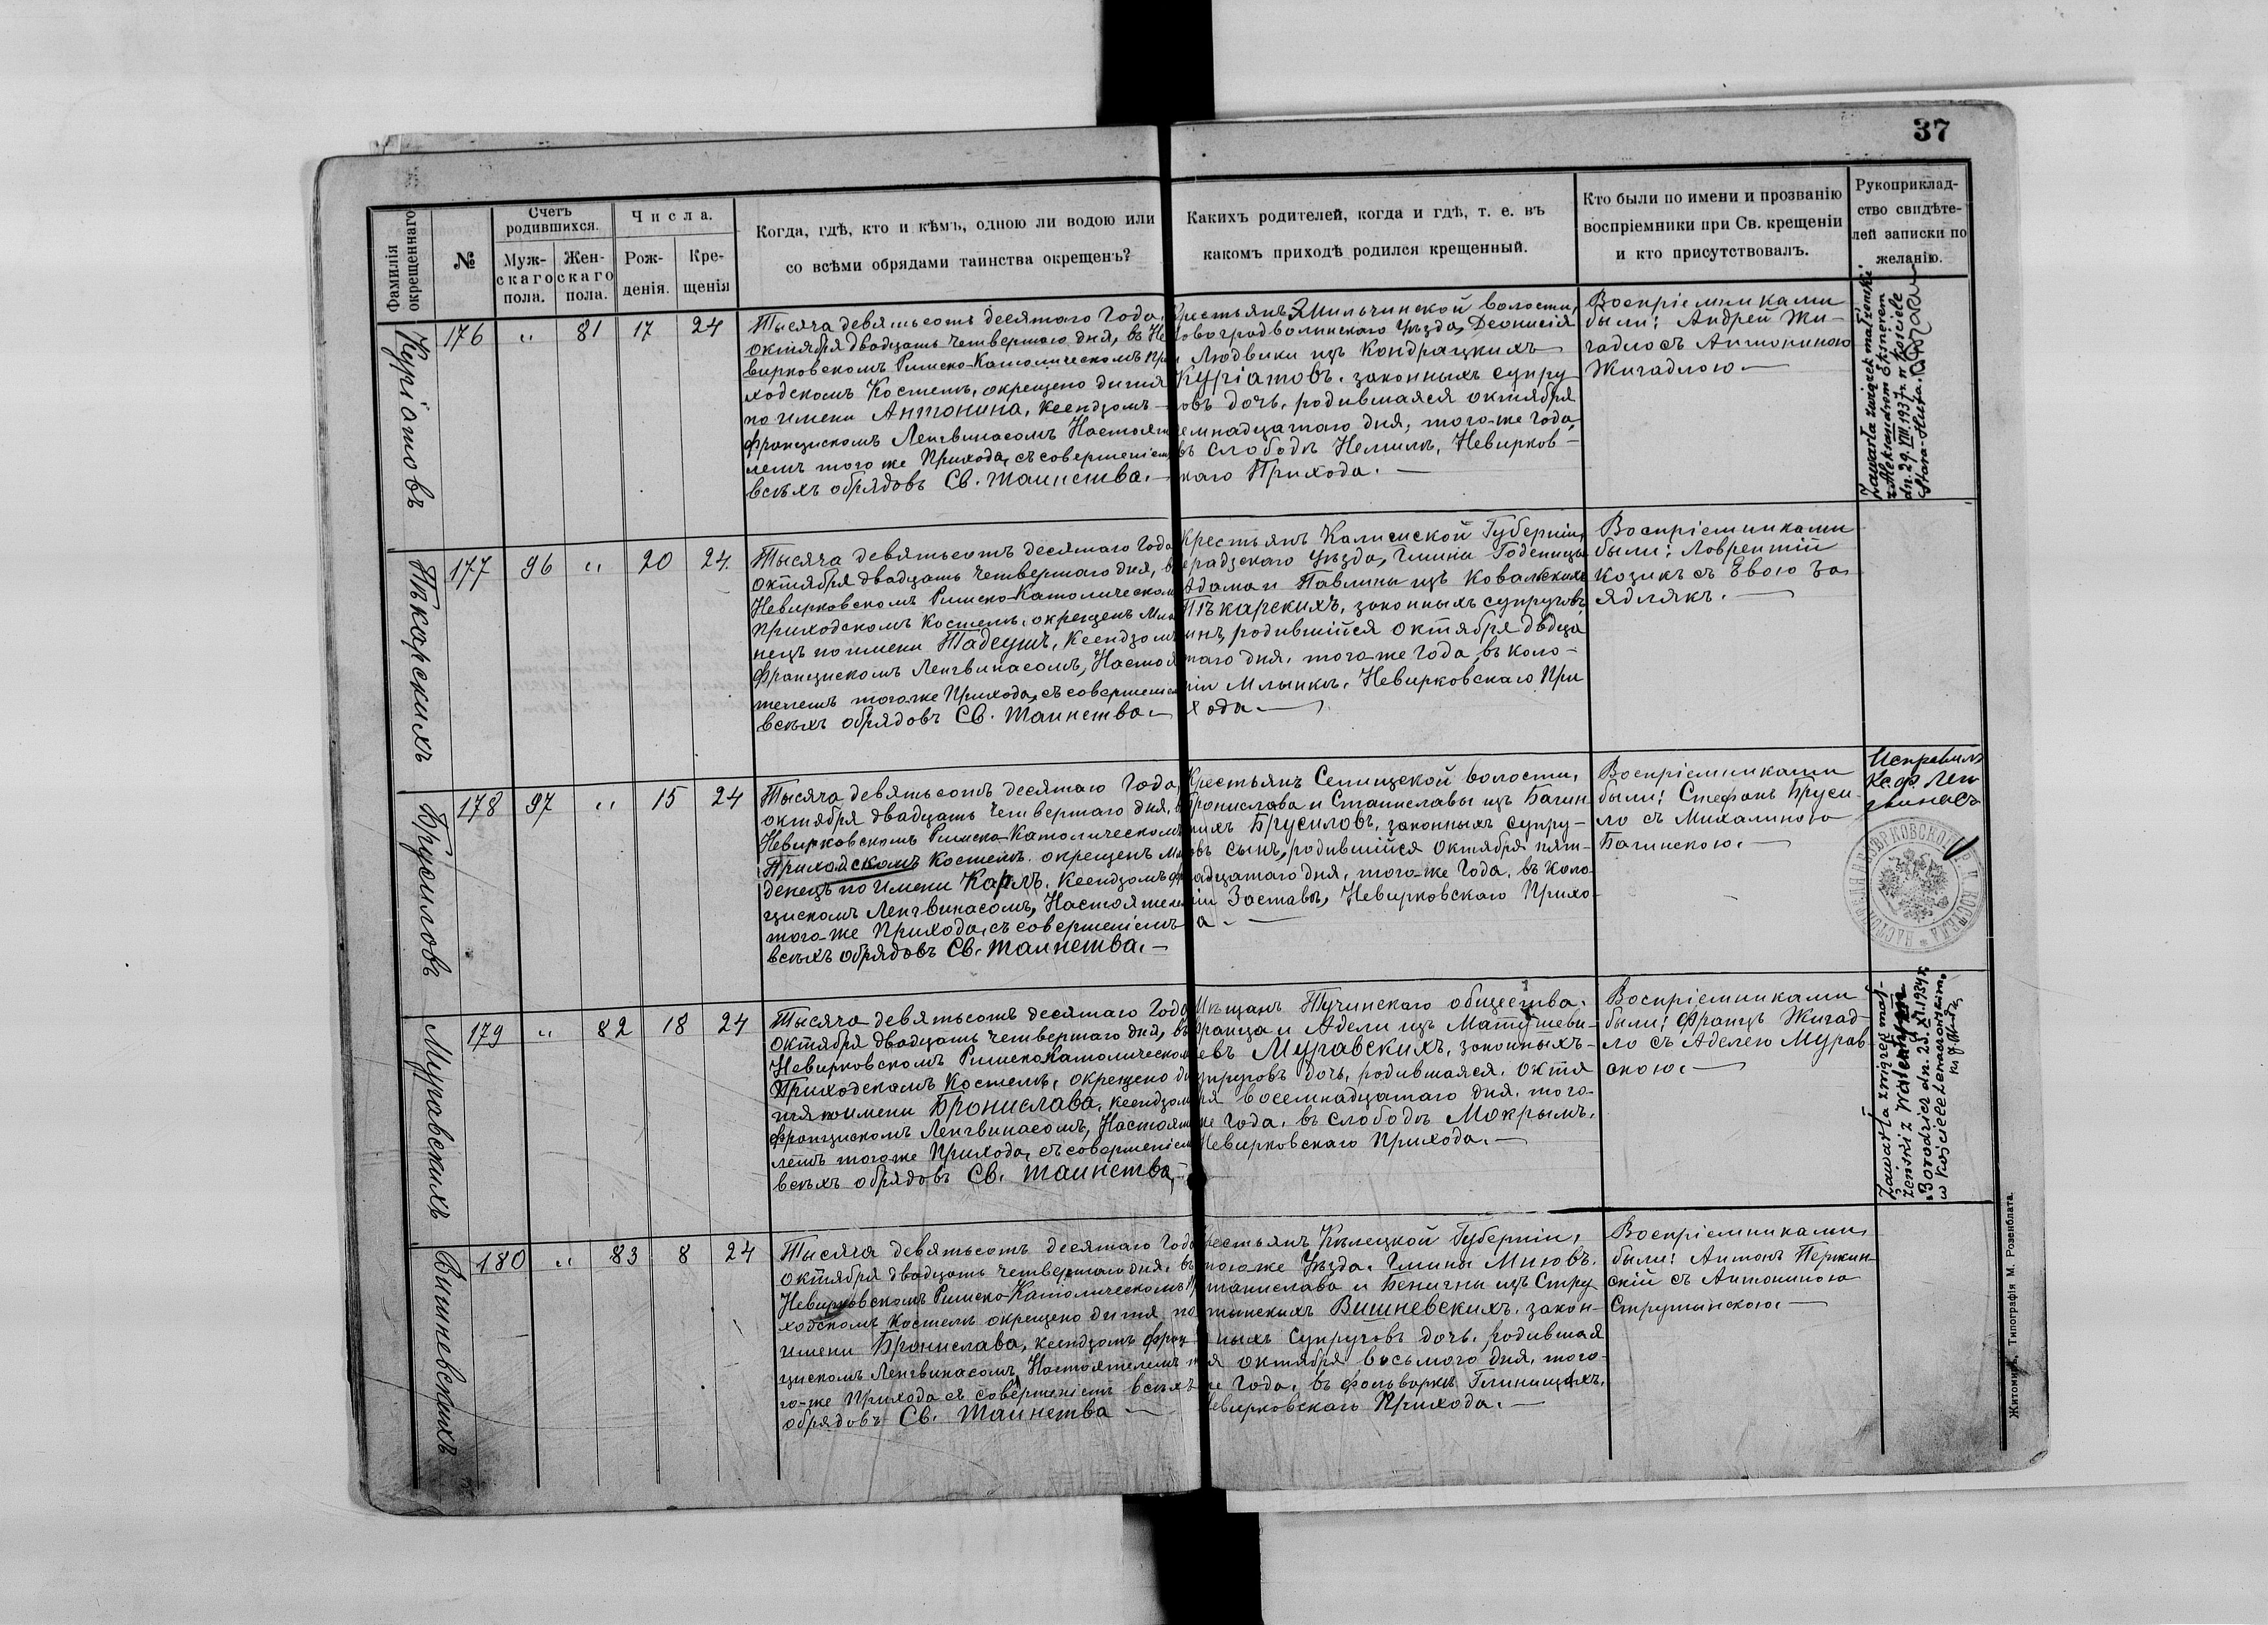 37
Фамилія окрещеннаго
№
Счетъ родившихся.
Муж-скаго пола.
Жен-скаго пола.
Числа.
Рож-денія.
Кре-щенія
Когда, гдѣ, кто и кѣмъ, одною ли водою или
со всѣми обрядами таинства окрещенъ?
Какихъ родителей, когда и гдѣ, т. е. въ
какомъ приходѣ родился крещенный.
Кто были по имени и прозванію
воспріемники при Св. крещеніи
и кто присутствовалъ.
Рукоприклад-
ство свидѣте-
лей записки по
желанію.
Куріатовъ
176 " 81 17 24
Тысяча девятьсотъ десятаго Года,
октября двадцать четвертаго дня, въ Не
вирковскомъ Римско-Католическомъ При
ходскомъ Костелѣ, окрещено дитя
по имени Антонина, Ксендзомъ
Францискомъ Ленгвинасомъ Настояте
лемъ того же Прихода, съ совершеніемъ
всѣхъ обрядовъ Св. таинства.
крестьянъ Эмильчинской волости,
Новоградволынскаго Уѣзда, Діонисія
и Людвики изъ Кондрацкихъ
Куріатовъ, законныхъ супру
овъ дочь, родившаяся октября
емнадцатаго дня, того-же года,
въ слободѣ Немилѣ, Невирков-
скаго Прихода.
Воспріемниками
были: Андрей Жи-
гадло съ Антониною
Жигадлою.
Zawarła związek małżeński
z Aleksandrem Eksnerem
dn. 29.VIII.1937 r. w kościele
Stara-Huta.
Пѣкарскихъ
177 96 " 20 24.
Тысяча девятьсотъ десятаго Года
октября двадцать четвертаго дня, въ
Невирковскомъ Римско-Католическомъ
Приходскомъ Костелѣ, окрещенъ Мла
нецъ по имени Тадеушъ, Ксендзомъ
Францискомъ Ленгвинасомъ, Настоя
телемъ того же Прихода, съ совершеніем
всѣхъ обрядовъ Св. Таинства.
крестьянъ Калишской Губерніи,
ерадзскаго Уѣзда, Гмины Годеницы
Адама и Павлины изъ Ковальскихъ
Пѣкарскихъ, законныхъ супруговъ
ынъ, родившійся октября двадца
таго дня, того-же Года, въ коло-
ніи Млынкѣ, Невирковскаго При
хода.
Воспріемниками
были: Лаврентій
Козикъ съ Евою За-
ядлякъ.
Брусиловъ
178 97 " 15 24
Тысяча девятьсотъ десятаго Года,
октября двадцать четвертаго дня, въ
Невирковскомъ Римско-Католическомъ
Приходскомъ Костелѣ окрещенъ Мла
денецъ по имени Карлъ, Ксендзомъ Фр
цискомъ Ленгвинасомъ, Настоятеле
того-же Прихода, съ совершеніемъ
всѣхъ обрядовъ Св. таинства.
крестьянъ Селищской волости,
Бронислава и Станиславы изъ Багин
кихъ Брусиловъ, законныхъ супру-
овъ сынъ, родившійся октября пят-
надцатаго дня, того-же Года, въ коло-
ніи Заставѣ, Невирковскаго Прихо-
а.
Воспріемниками
были: Стефанъ Бруси-
ло съ Михалиною
Багинскою.
Исправилъ
Кс. Ф. Лен
гвинасъ
Муравскихъ
179 " 82 18 24
Тысяча девятьсотъ десятаго Года
октября двадцать четвертаго дня, въ
Невирковскомъ Римско-Католическом
Приходскомъ Костелѣ, окрещено ди
тя по имени Бронислава, Ксендзом
Францискомъ Ленгвинасомъ, Настояте
лемъ того же Прихода, съ совершеніем
всѣхъ обрядовъ Св. таинства.
Мѣщанъ Тучинскаго общества.
Франца и Адели изъ Матушеви-
евъ Муравскихъ, законныхъ-
супруговъ дочь, родившаяся, октя
ря восемнадцатаго дня, того-
же Года, въ слободѣ Мокрымъ,
Невирковскаго Прихода.
Воспріемниками
были: Францъ Жигад-
ло съ Аделею Мурав-
скою.
Zawarła związek mał-
żeński z Walentym
Borodzicz dn. 25.XI.1934 r.
w kościele
Вишневскихъ
180 " 83 8 24
Тысяча девятьсотъ десятаго Года
октября двадцать четвертаго дня, въ
Невирковскомъ Римско-Католическомъ Пр
ходскомъ Костелѣ окрещено дитя по
имени Бронислава, Ксендзомъ Фран
цискомъ Ленгвинасомъ Настоятелемъ т
го-же Прихода съ совершеніемъ всѣхъ
обрядовъ Св. Таинства
рестьянъ Кѣлецкой Губерніи,
того же Уѣзда, Гмины Мнювъ,
таниславa и Бенигны изъ Стру
тинскихъ Вишневскихъ, закон-
ныхъ супруговъ дочь, родившая
я октября восьмого дня, того-
же Года, въ фольваркѣ Глинищахъ,
евирковскаго Прихода.
Воспріемниками
были: Антонъ Перкин-
скій съ Антониною
Струтинскою.
Житомиръ, Типографія М. Розенблата.